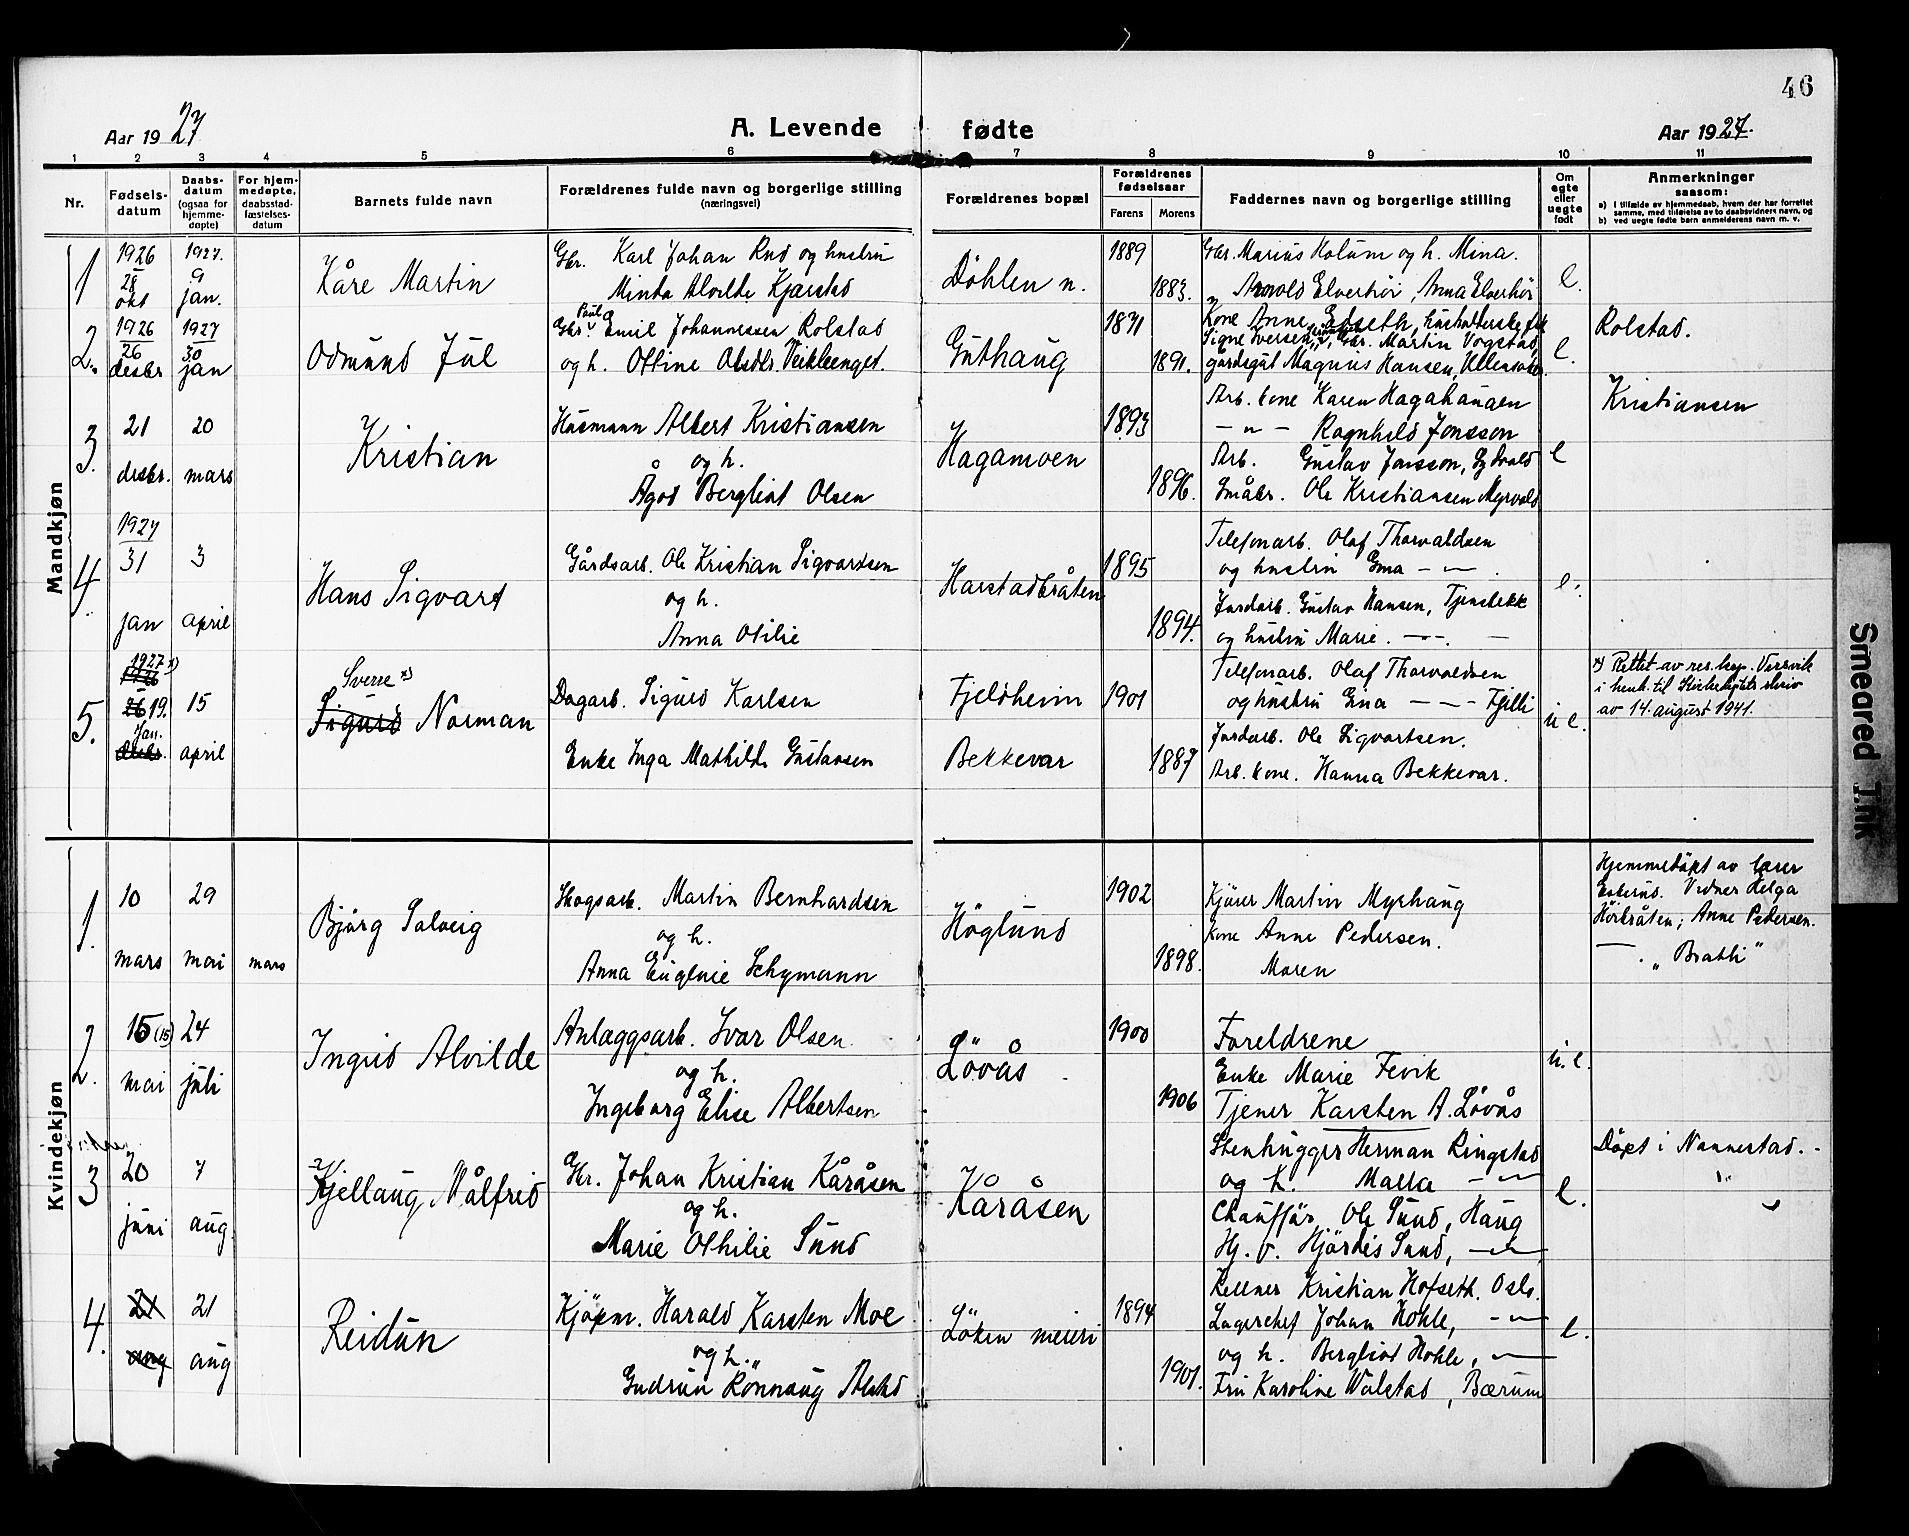 46
Aar 1927
A. Levende fødte
Aar 1927.
1 2 3 4 5 6 7 8 9 10 11
Nr.
Fødsels-
datum
Daabs-
datum
(ogsaa for
hjemme-
døpte)
For hjem-
medøpte,
daabsstad-
fæstelses-
datum
Barnets fulde navn
Forældrenes fulde navn og borgerlige stilling
(næringsvei)
Forældrenes bopæl
Forældrenes
fødselsaar
Farens Morens
Faddernes navn og borgerlige stilling
Om
egte
eller
uegte
født
Anmerkninger
saasom:
a) i tilfælde av hjemmedaab, hvem der har forrettet
samme, med tilføielse av to daabsvidners navn, og
b) ved uegte fødte barn anmelderens navn m. v.
Mandkjøn
1
1926
28
okt
1927.
9
jan.
Kåre Martin
Gbr. Karl Johan Rud og hustru
Minda Alvilde Kjærstad
Döhlen n.
1889
1883.
Gbr. Marius Holum og h. Mina.
" Arnold Elverhöi, Anna Elverhöi
e.
2.
1926
26
desbr
1927
30
jan
Odmund Jul
Paul
Gbr. Emil Johannessen Rolstad
og h. Ottine Olsdtr. Veikleenget.
Guthaug
1871
1891.
Kone Anne Edseth, husholderske frk
Signe Iversen, Gbr. Martin Vogstad,
gårdsgut Magnus Hansen, Ullensaker.
e.
Rolstad.
3.
21
desbr.
20
mars
Kristian
Husmann Albert Kristiansen
og h.
Ågot Bergliot Olsen
Hagamoen
1893
1896.
Arb. kone Karen Hagahaugen
— " — Ragnhild Jonsson
Arb. Gustav Jonsson,
Småbr. Ole Kristiansen Myrvold
e
Kristiansen
4.
1927
31
jan
3
april
Hans Sigvart
Gårdsarb. Ole Kristian Sigvartsen
og h.
Anna Otilie
Harstadbråten
1895
1894.
Telefonarb. Olaf Thorvaldsen
og hustru Ema — " — .
Jordarb. Gustav Hansen, Tjenslekk
og hustru Marie. — " — —
e.
5.
1927 x)
1926
26 19.
Jan.
desbr.
15
april
Sverre x)
Sigurd Norman
Dagarb. Sigurd Karlsen
Enke Inga Mathilde Gustavsen
Fjeldheim
Bekkevar
1901
1887
Telefonarb. Olaf Thorvaldsen
og hustru Ema — " — Fjelli
Jordarb. Ole Sigvartsen.
Arb. kone. Hanna Bekkevar.
u. e.
x) Rettet av res. kap. Versvik
i henh. til Kirkedpts skriv
av 14. august 1941.
Kvindekjøn
1.
10
mars
29
mai
mars
Bjürg Solveig
Skogsarb. Martin Bernhardsen
og h.
Anna Eugenie Schymann
Höglund
1902
1898.
Kjörer Martin Myrhaug
Kone Anne Pedersen.
Maren
Hjemmedöpt av lærer
Enkerud. Vidner Helga
Hörbråten; Anne Pedersen.
— . „ Bratli "
2.
15 (15)
mai
24
juli
Ingrid Alvilde
Anlæggsarb. Ivar Olsen
og h.
Ingeborg Elise Albertsen
Lövås
1900
1906
Foreldrene
Enke Marie Fevik
Tjener Karsten A. Lövås
u. e.
3
20
juni
7
aug.
Kjellaug Målfrid
Gbr. Johan Kristian Kåråsen
og h.
Marie Othilie Sund
Kåråsen
Stenhugger Herman Ringstad
og h. Malla — " —
Chaufför Ole Sund, Haug
Hj. v. Hjördis Sund, — " —
e.
Döpt i Nannestad.
4.
21
aug
21
aug
Reidun
Kjöpm. Harald Karsten Moe
og h.
Gudrun Rönnaug Alstad
Löken meieri
1894
1901.
Kellner Kristian Hofseth. Oslo.
Lagerchef Johan Hohle, — " —
og h. Bergliot Hohle, — " —
Fru Karoline Wolstad, Bærum
e.
Smeared Ink